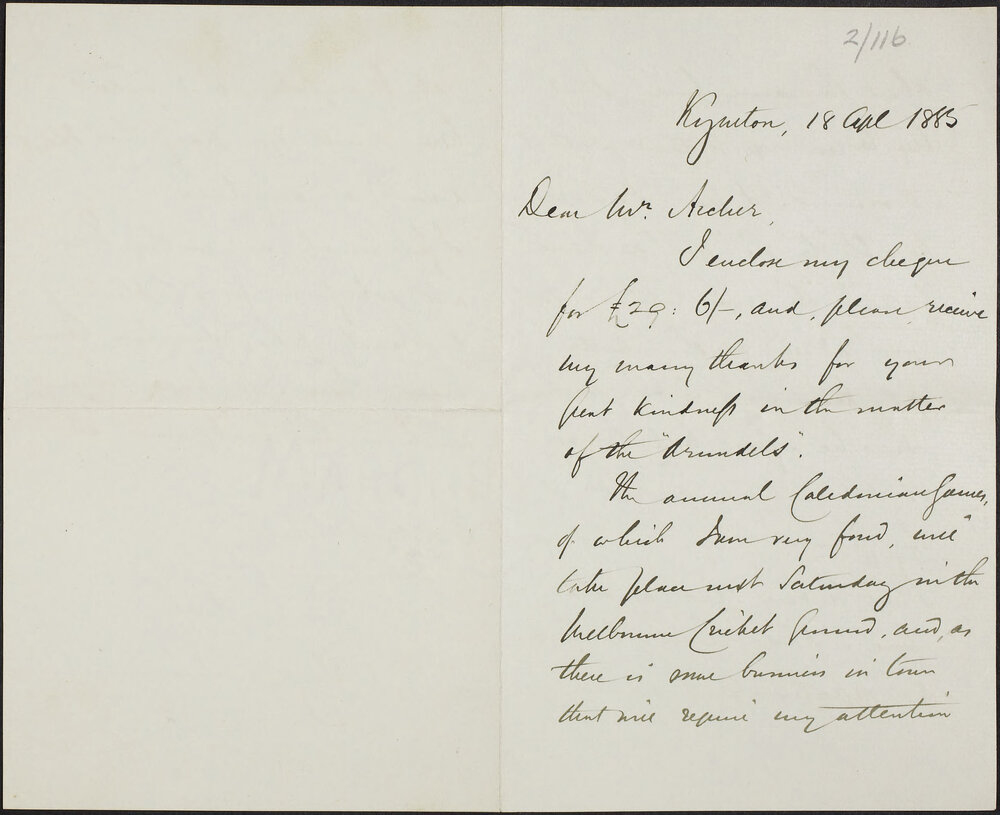 2/116
Kyneton, 18 Apl 1885
Dear Mr. Archer,
I enclose my cheque
for £29: 6/-, and, please, receive
my many thanks for your
great kindness in the matter
of the "Arundels".
The annual Caledonian Games,
of which I am very fond, will
take place next Saturday in the
Melbourne Cricket Ground, and, as
there is some business in town
that will require my attention